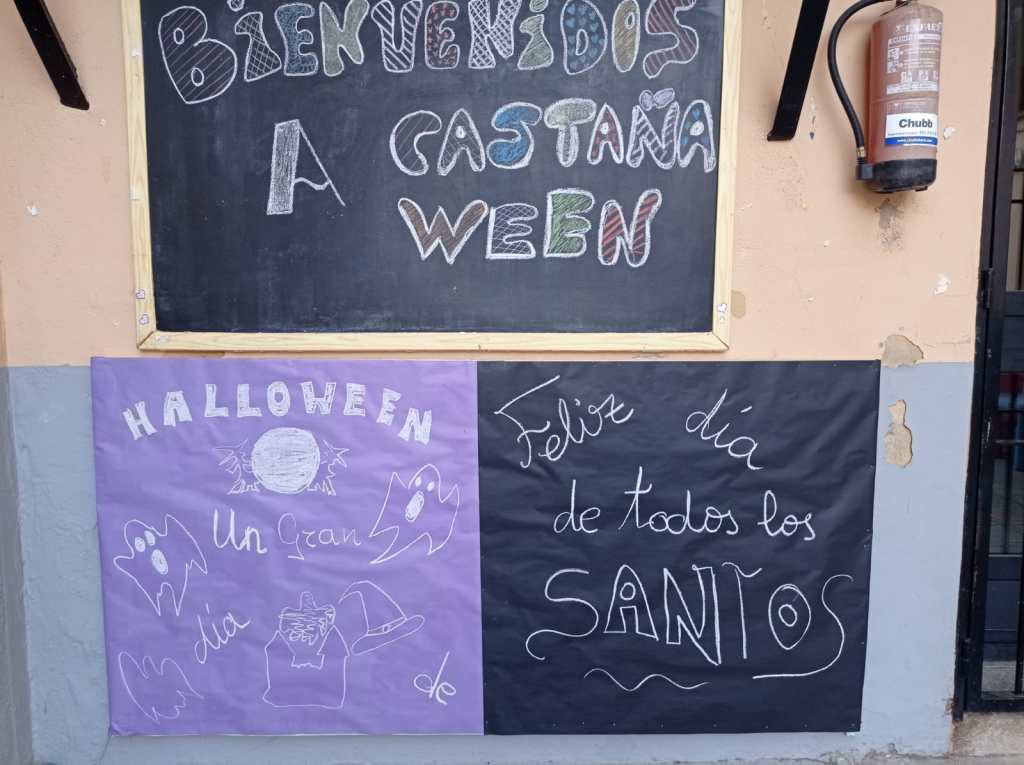 BIENVENIDOS
A CASTAÑA
WEEN
HALLOWEEN
Un Gran
día
de
Feliz día
de todos los
SANTOS
Chubb